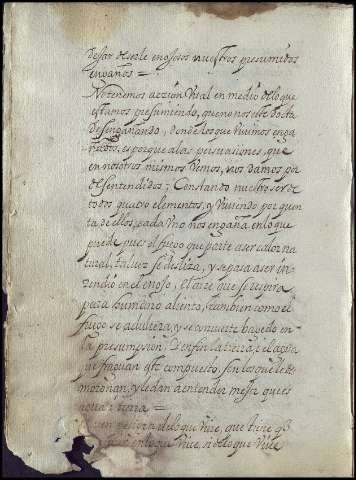 nuestros presumidos
engaños =
No tenemos acçion Vital en medio de lo que
estamos presumiendo, que no nos este
desengañando, donde los que Viuimos enga
ñados, es porque a las persuasiones, que
en nosotros mismos Vemos, nos damos por
desentendidos; Constando nuestro ser de
todos quatro elementos, y Viuiendo por quen
ta de ellos, cada Vno nos engaña en lo que
puede, pues el fuego que parte a ser calor na
tural, tal vez se desliza, y se pasa a ser in
cendio en el enojo, el aire que se respira
para humano aliento, tambien como el
fuego se adultera, y se conuierte en
la presumpçion. Y en fin la tierra, i el agua
que fraguan este compuesto, sin los que le
y le dan a entender mejor que es
agua i tierra =
de lo que hice, que hice
en lo que hice, si de lo que hice